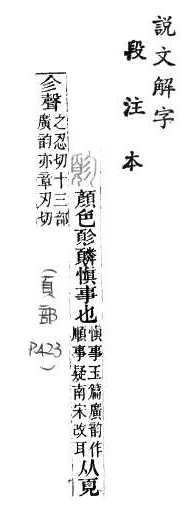 說文解字
段注本
顏色䫰愼事也
愼事玉篇廣韵作
順事疑南宋改耳
从頁
㐱聲
之忍切十三部
廣韵亦章刃切
(頁部 P.423)